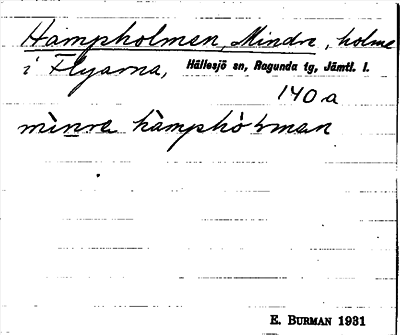 Hampholmen, Mindre, holme
i Flyarna, Hällesjö sn, Ragunda tg, Jämtl. l.
140 a
minre hampholman
E. BURMAN 1931